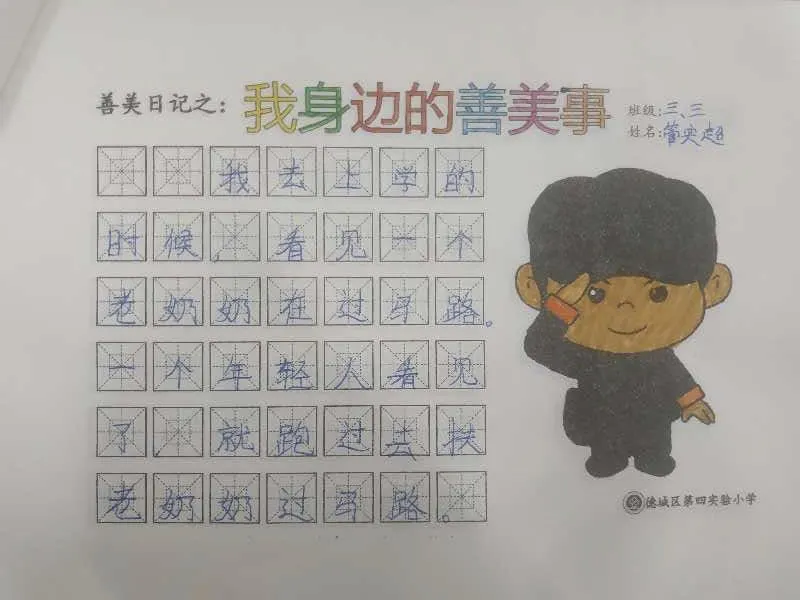 善美日记之：我身边的善美事
班级：三、三
姓名：管奕超
我去上学的
时候，看见一个
老奶奶在过马路。
一个年轻人看见
了，就跑过去扶
老奶奶过马路。
德城区第四实验小学